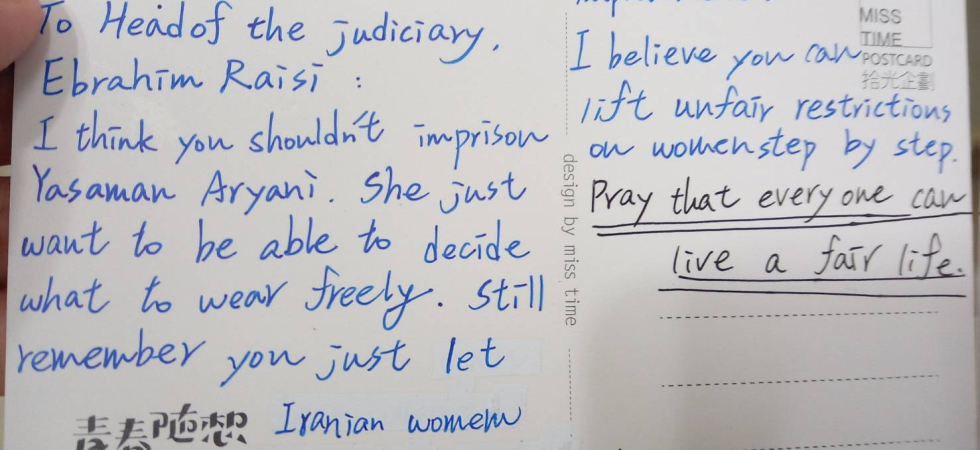 To Head of the judiciary,
Ebrahim Raisi :
I think you shouldn't imprison
Yasaman Aryani. She just
want to be able to decide
what to wear freely. Still
remember you just let
Iranian womem
青春随想
design by miss time
MISS
TIME
POSTCARD
拾光企劃
I believe you can
lift unfair restrictions
on women step by step.
Pray that everyone can
live a fair life.